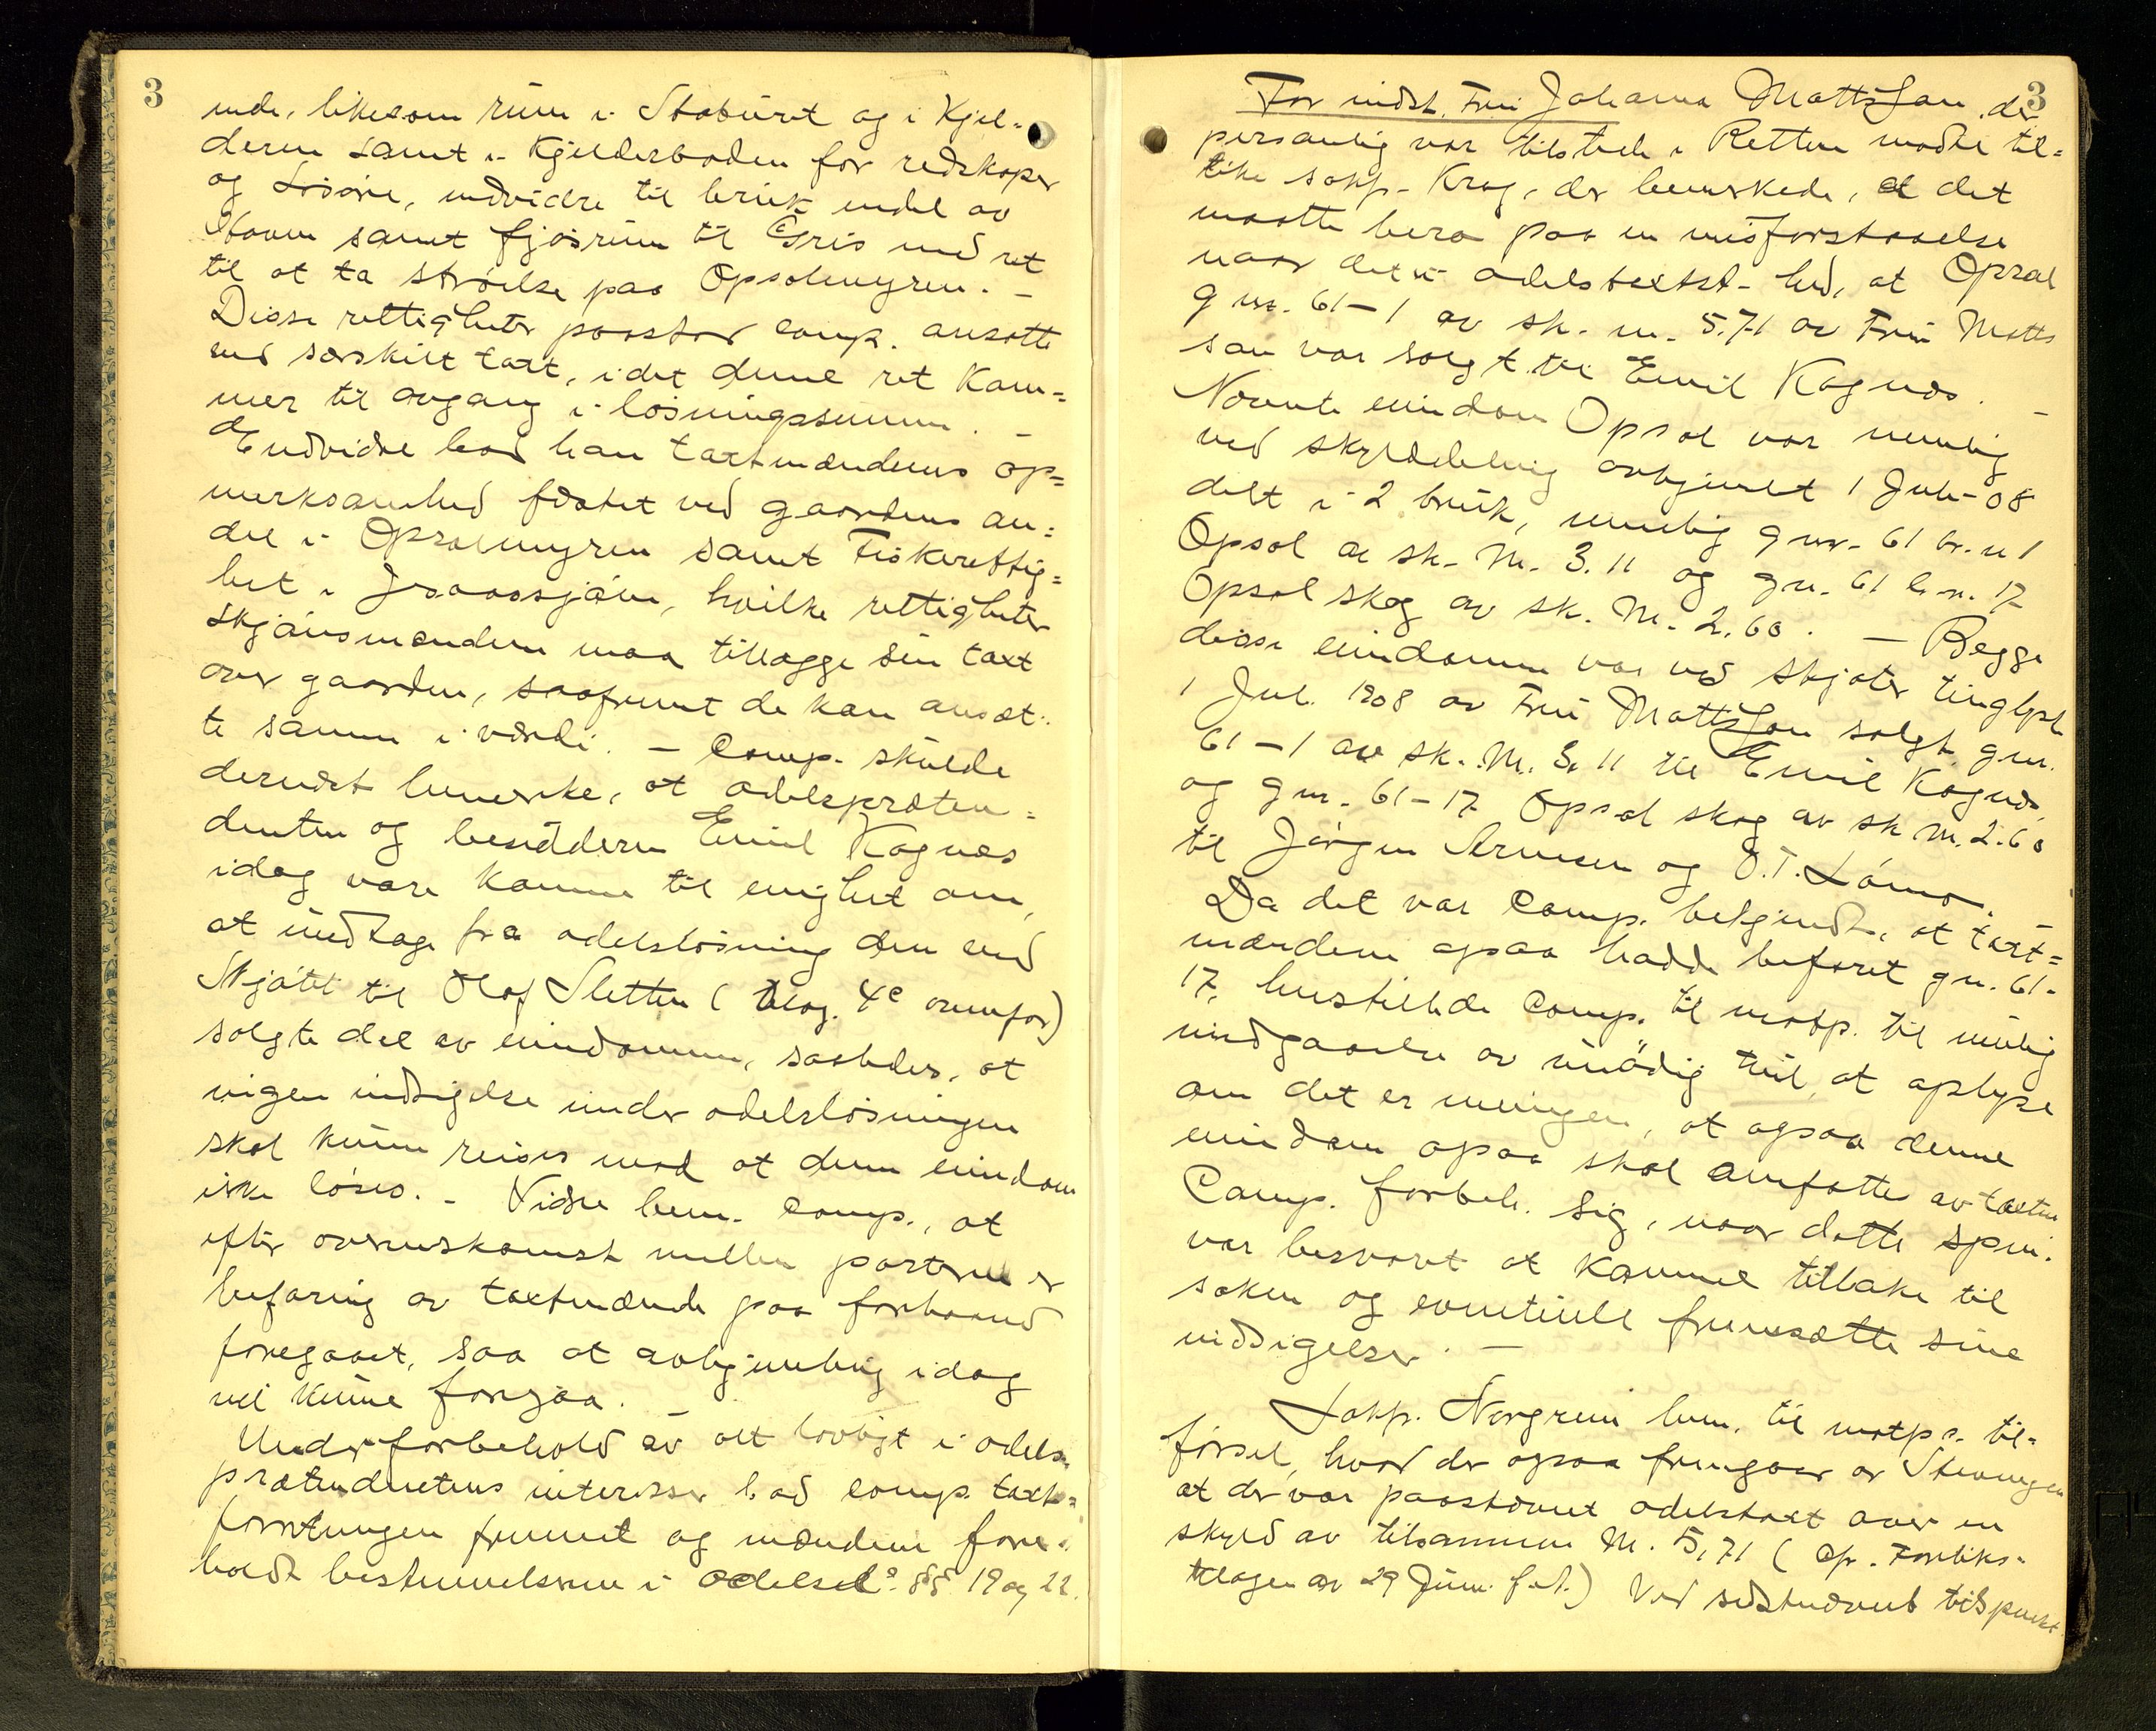 3
ende, likesom rum i Stabüret og i Kjel-
deren samt i Kjelderboden for redskaper
og Lösöre, endvidre til brük endel av
Stoven samt fjösrüm til Gris med ret
til at ta ströelse paa Opsalmyren. –
Disse rettigheter paastod comp. ansatte
ved særskilt taxt, idet denne ret kom-
mer til avgang i lösningssummen. –
Endvidre bad han taxtmændenes op-
merksomhed fæstet ved gaardens an-
del i Opsalmyren samt Fiskerettig-
het i sjöen, hvilke rettigheter
skjönsmændene maa tillægge sin taxt
over gaarden, saafremt de kan ansæt-
te samme i værdi. – Comp. skülde
dernæst bemerke, at odelspræten-
denten og besidderen Emil Kognæs
idag vare komne til enighet om,
at ündtage fra odelslösning den ved
Skjöte til Olaf Sletten (Bilag 4c ovenfor)
solgte del av eiendommen, saaledes, at
ingen indsigelse ünder odelslösningen
skal künne reises mod at denne eiendom
ikke löses. – Vidre bem. comp., at
efter overenskomst mellem parterne er
befaring av taxtmændene paa forhaand
foregaaet, saa at avhjemling idag
vil künne foregaa. –
Under forbehold av alt lovligt i odels-
prætendentens interesse bad comp. taxt-
forretningen fremmet og mændene fore-
holdt bestemmelserne i odelsl. §§ 19 og 22.
3
For indst. Früi Johanna Mattsson, der
personlig var tilstede i Retten mødte til-
like sakf. Krog, der bemerkede, at det
maatte bero paa en misforstaaelse
naar det i odelstaxtst. hed, at Opsal
gnr. 61-1 av sk. m. 5.71 av Früi Matts
son var solgt til Emil Kognæs. –
Nævnte eiendom Opsal var nemlig
ved skylddeling avhjemlet 1 Juli 08
delt i 2 brük, nemlig gnr. 61 br. n 1
Opsal av sk. M. 3.11 og gn. 61 b. n. 17
Opsal skog av sk. M. 2.60. – Begge
disse eiendomme var ved skjöter tinglyst
1 Jul. 1908 av Früi Mattsson solgt, gnr.
61-1 av sk. M. 3.11 til Emil Kognæs,
og gnr. 61-17 Opsal skog av sk M. 2.60
til Jörgen Arnesen og O. T. Lömo. –
Da det var Comp. bekjendt, at taxt-
mændene ogsaa hadde befaret gn. 61-
17, henstillede Comp. til motp. til mülig
undgaaelse av ünödig tvil, at oplyse
om det er meningen, at ogsaa denne
eiendom ogsaa skal omfattes av taxten
Comp. forbeh. sig, naar dette spm.
var besvaret at komme tilbake til
saken og eventüelt fremsætte sine
indsigelser. –
Sakf. Norgreni bem. til motp.s til-
försel, hvad der ogsaa fremgaar av Stevningen
at der var paastævnet odelstaxt over en
skyld av tilsammen M. 5,71 (cfr. Forliks-
klagen av 29 Jüni f. A.) Ved sidstnævnte tidspunkt